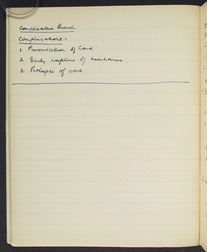 Complicated Breech
Complications:-
1. Presentation of Cord.
2. Early rupture of membranes.
3. Prolapse of cord.